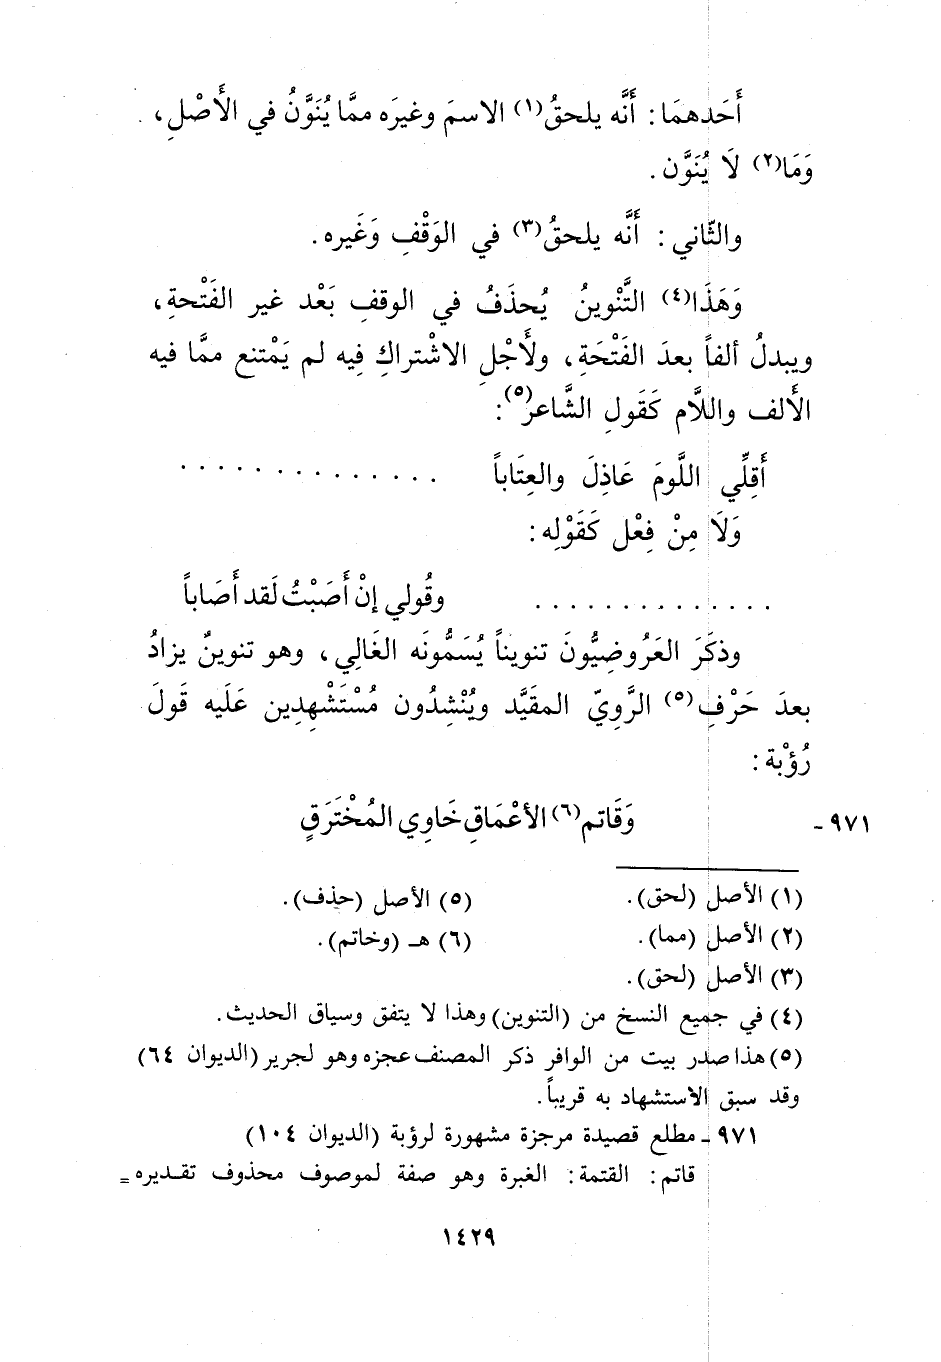 أَحَدهمَا: أَنَّه يلحقُ(١) الاسمَ وغيرَه ممَّا يُنَوَّنُ في الأَصْلِ،
وَمَا(٢) لَا يُنَوَّن.
والثّاني: أَنَّه يلحقُ(٣) في الوَقْفِ وَغَيره.
وَهَذَا(٤) التَّنْوينُ يُحذَفُ في الوقفِ بَعْد غير الفَتْحةِ،
ويبدلُ ألفاً بعدَ الفَتْحَةِ، ولأَجْلِ الاشْتراكِ فِيه لم يَمْتنع ممَّا فيه
الأَلف واللَّام كَقَولِ الشَّاعر(٥):
أَقِلِّي اللَّومَ عَاذِلَ والعِتَاباً ..............
وَلَا مِنْ فِعْل كَقَوْلِه:
.............. وقُولي إنْ أَصَبْتُ لَقد أَصَاباً
وذكَرَ العَرُوضِيُّونَ تنويناً يُسَمُّونَه الغَالِي، وهو تنوينٌ يزادُ
بعدَ حَرْفِ(٥) الرَّوِيّ المقيَّد ويُنْشِدُون مُسْتَشْهِدِين عَلَيه قَولَ
رُؤْبة:
٩٧١- وَقَاتم(٦) الأعْمَاقِ خَاوِي المُخْتَرَقٍ
(١) الأصل (لحق). (٥) الأصل (حذف).
(٢) الأصل (مما). (٦) هـ (وخاتم).
(٣) الأصل (لحق).
(٤) في جميع النسخ من (التنوين) وهذا لا يتفق وسياق الحديث.
(٥) هذا صدر بيت من الوافر ذكر المصنف عجزه وهو لجرير (الديوان ٦٤)
وقد سبق الاستشهاد به قريباً.
٩٧١ - مطلع قصيدة مرجزة مشهورة لرؤبة (الديوان ١٠٤)
قاتم: القتمة: الغبرة وهو صفة لموصوف محذوف تقديره =
١٤٢٩